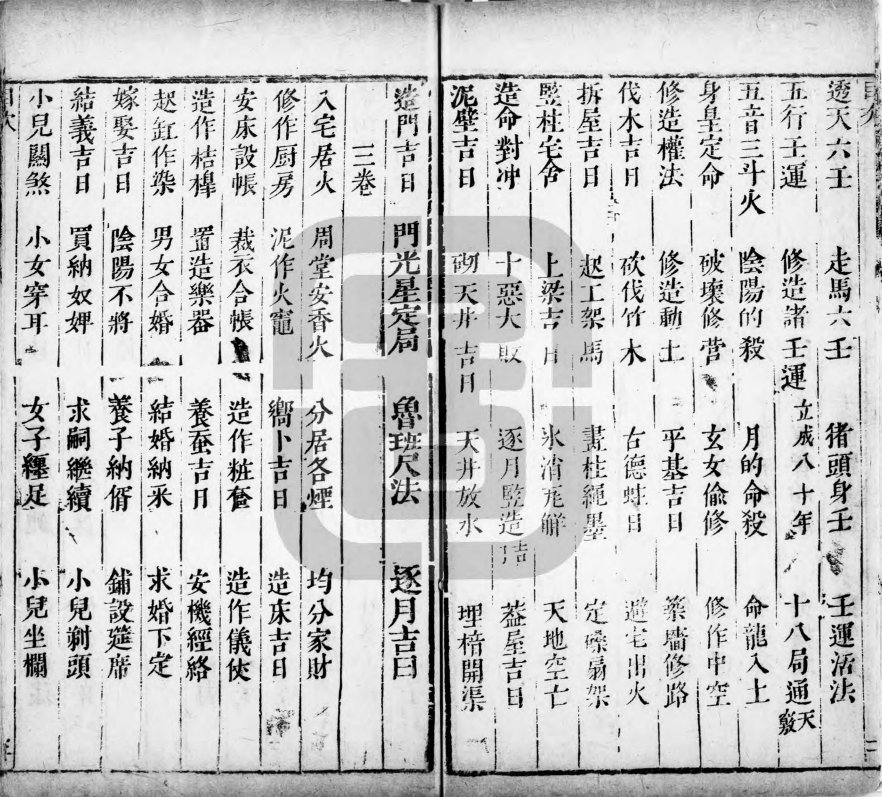 透天六壬 走馬六壬 猪頭身壬 壬運活法
五行壬運 修造諸壬運 立成八十年 十八局通天竅
五音三斗火 陰陽的殺 月的命殺 命龍入土
身皇定命 破壞修营 玄女偷修 修作中空
修造權法 修造動土 平基吉日 築墻修路
伐木吉日 砍伐竹木 古德蛀日 避宅出火
拆屋吉日 起工架馬 畫柱繩墨 定磉扇架
竪柱宅舍 上梁吉日 氷消瓦觧 天地空亡
造命對冲 十惡大敗 逐月竪造 葢屋吉日
泥壁吉日 砌天井吉日 天井放水 埋楿開渠
造門吉日 門光星定局 魯班尺法 逐月吉日
三卷
入宅居火 周堂安香火 分居各煙 均分家財
修作厨房 泥作火竈 嚮卜吉日 造床吉日
安床設帳 裁衣合帳 造作粧奩 造作儀仗
造作桔槹 置造樂器 養蚕吉日 安機經絡
起缸作染 男女合婚 結婚納采 求婚下定
嫁娶吉日 陰陽不將 養子納婿 鋪設筵席
結義吉日 買納奴婢 求嗣繼續 小兒剃頭
小兒關煞 小女穿耳 女子纏足 小兒坐欄
目次